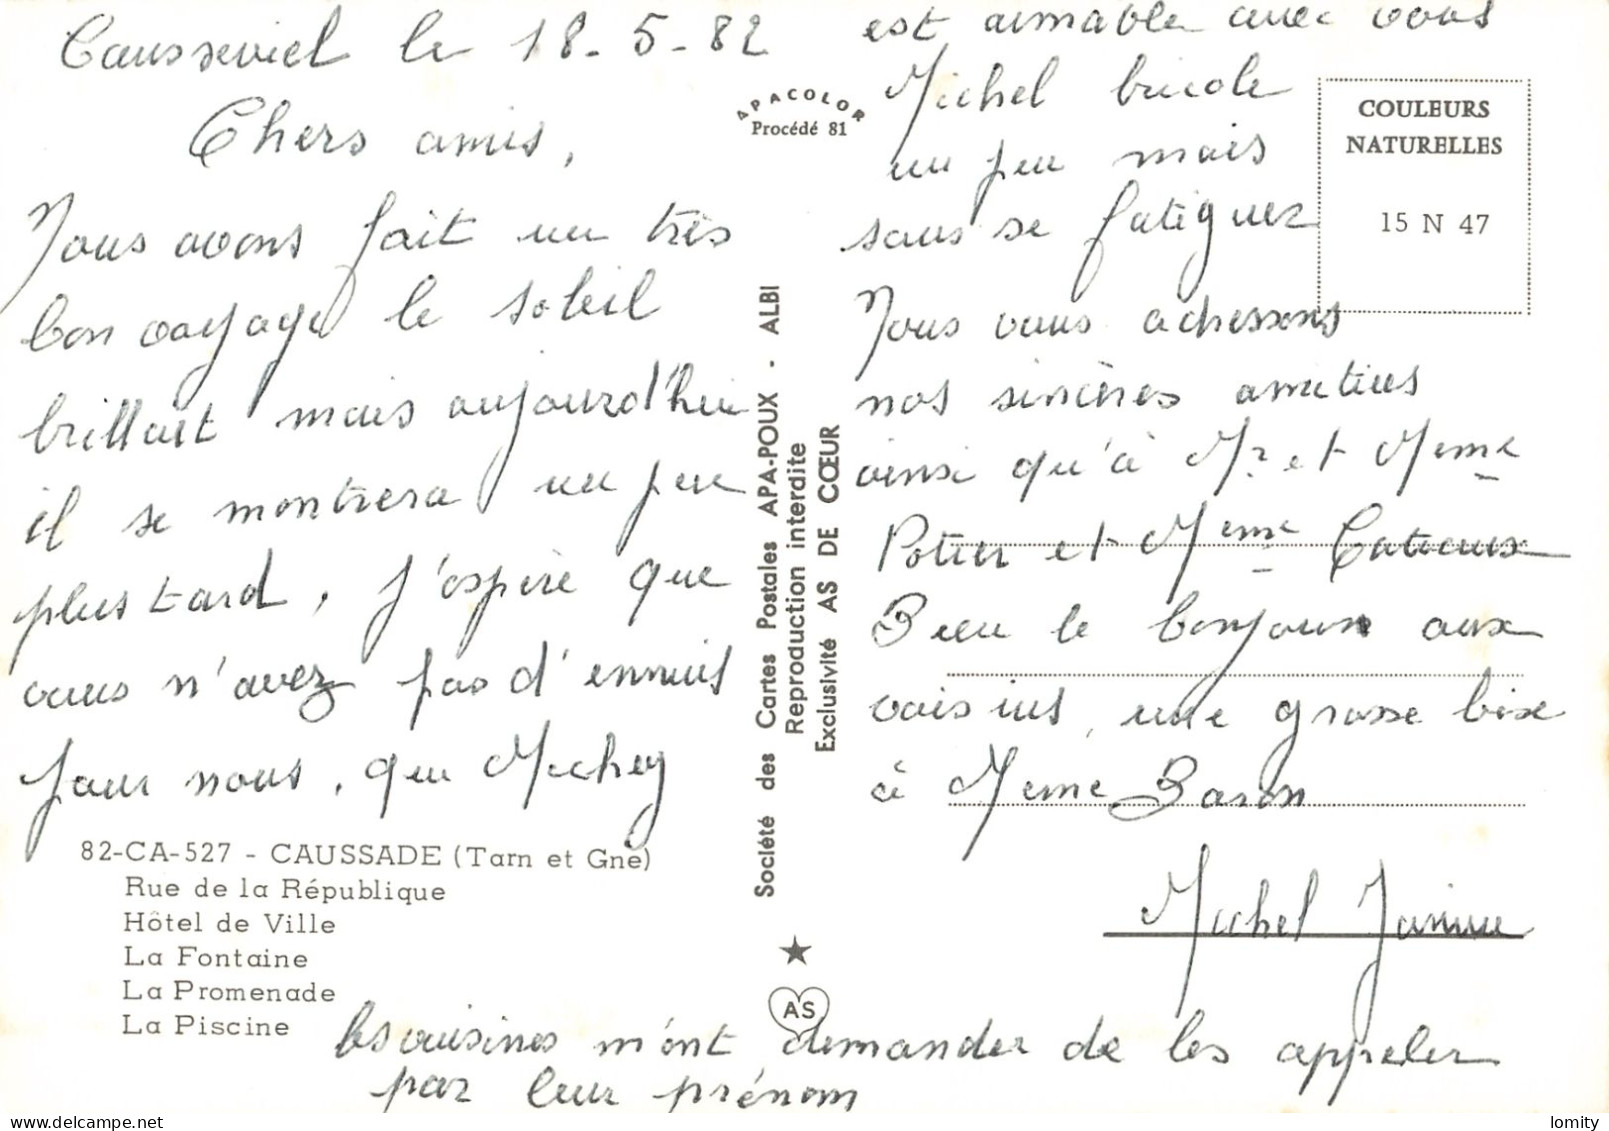 Causseviel le 18-5-82
Chers amis,
Nous avons fait un très
bon voyage le soleil
brillait mais aujourd'hui
il se montrera un peu
plus tard, j'espère que
vous n'avez pas d'ennuis
pour nous, que Michey
est aimable avec vous
Michel bricole
un peu mais
sans se fatiguer
Nous vous adressons
nos sincères amitiés
ainsi qu'à Mr et Meme
Potier et Meme
Bien le bonjour aux
voisins, une grosse bise
à Meme Baron
Michel Janine
les voisines m'ont demander de les appeler
par leur prénom
APACOLOR
Procédé 81
COULEURS
NATURELLES
15 N 47
Société des Cartes Postales APA-POUX - ALBI
Reproduction interdite
Exclusivité AS DE CŒUR
AS
82-CA-527 - CAUSSADE (Tarn et Gne)
Rue de la République
Hôtel de Ville
La Fontaine
La Promenade
La Piscine
lomity